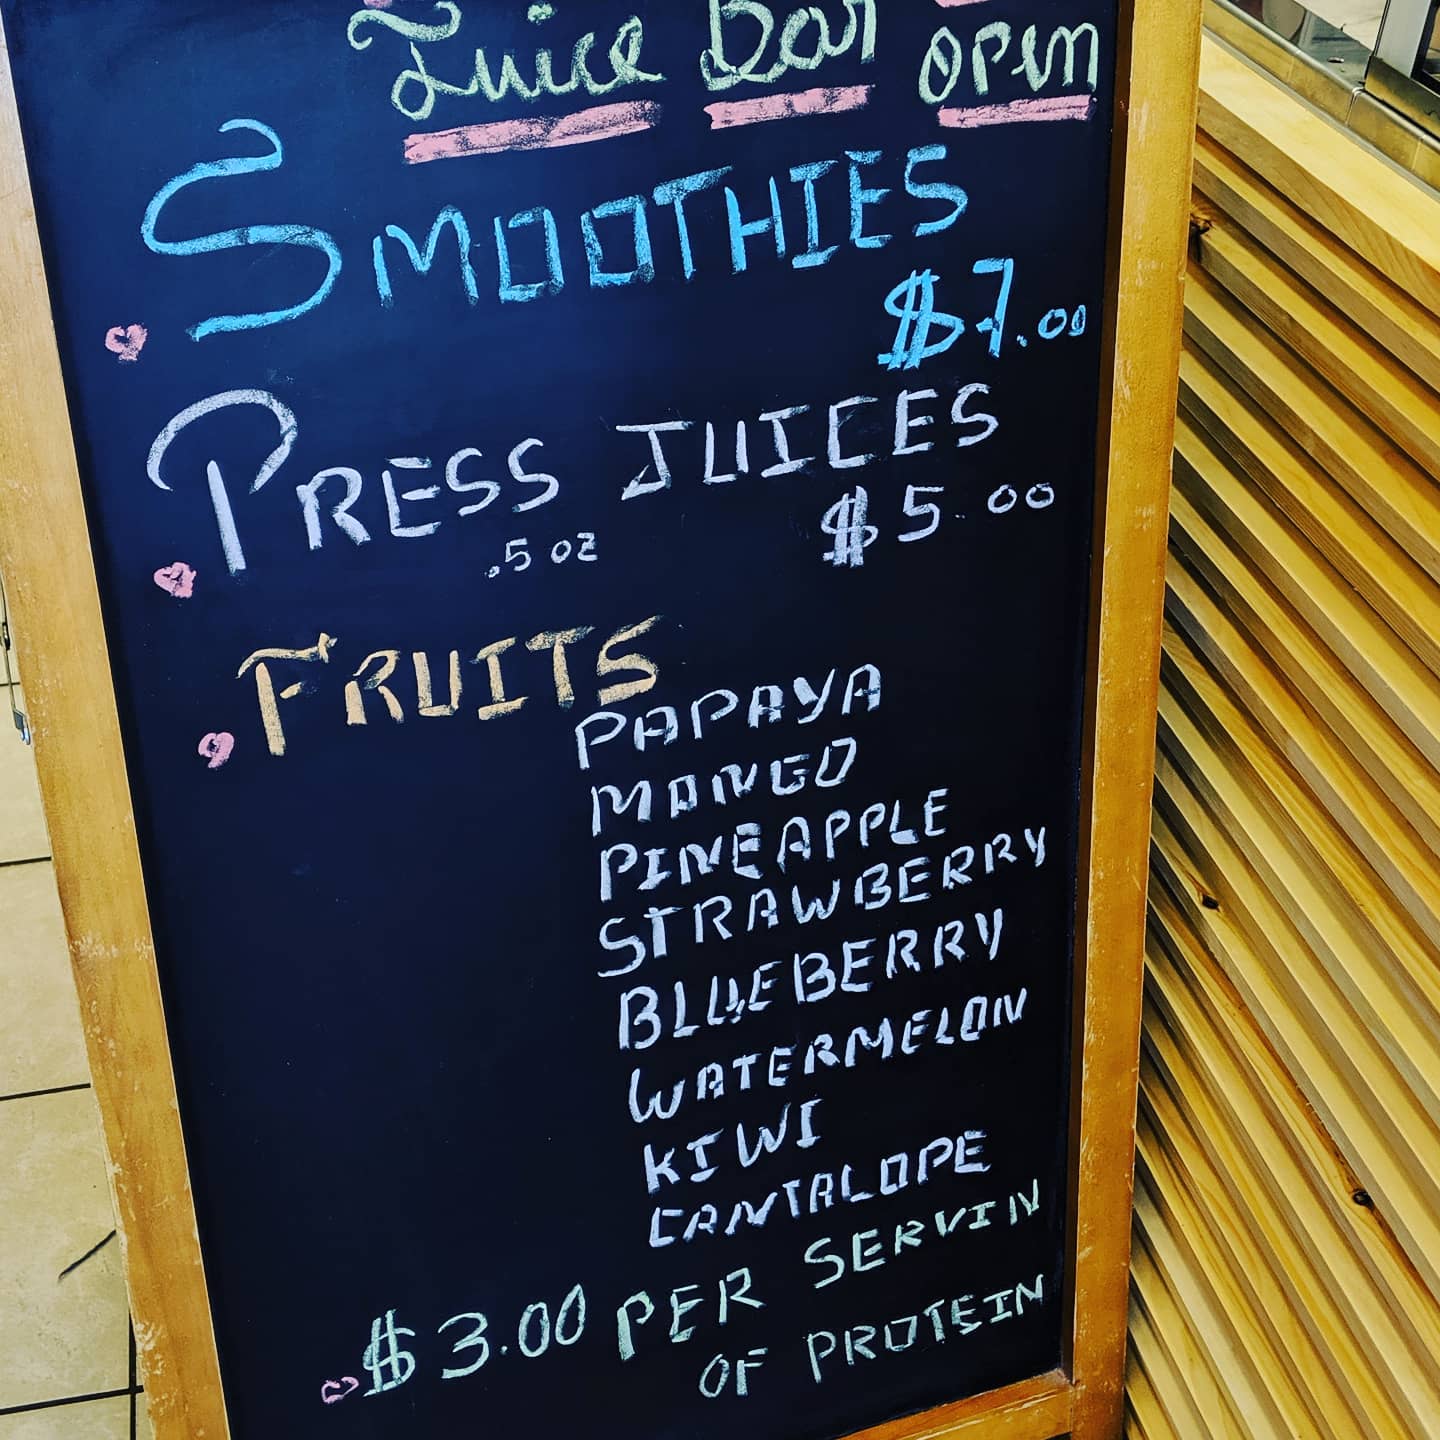 Juice Bar OPEN
SMOOTHIES
$7.00
PRESS JUICES
.5 oz $5.00
FRUITS
PAPAYA
MANGO
PINEAPPLE
STRAWBERRY
BLUEBERRY
WATERMELON
KIWI
CANTALOPE
$3.00 PER SERVIN
OF PROTEIN